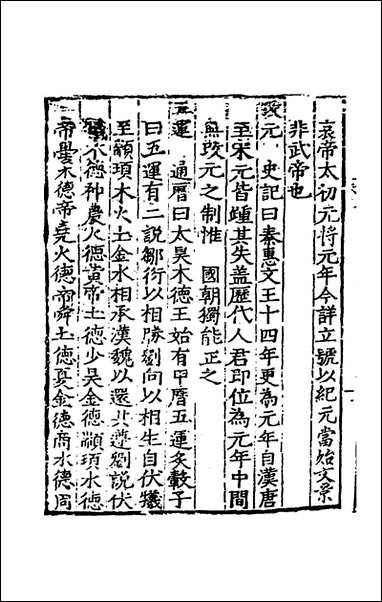 哀帝太初元將元年今詳立號以紀元當始文景
非武帝也
改元　史記曰秦惠文王十四年更為元年自漢唐
至宋元皆踵其失盖歷代人君即位為元年中間
無改元之制惟　國朝獨能正之
五運　通曆曰太昊木德王始有甲曆五運炙轂子
曰五運有二說鄒衍以相勝劉向以相生自伏犧
至顓頊木火土金水相承漢魏以還共遵劉說伏
犧木德神農火德黃帝土德少昊金德顓頊水德
帝嚳木德帝堯火德帝舜土德夏金德商水德周